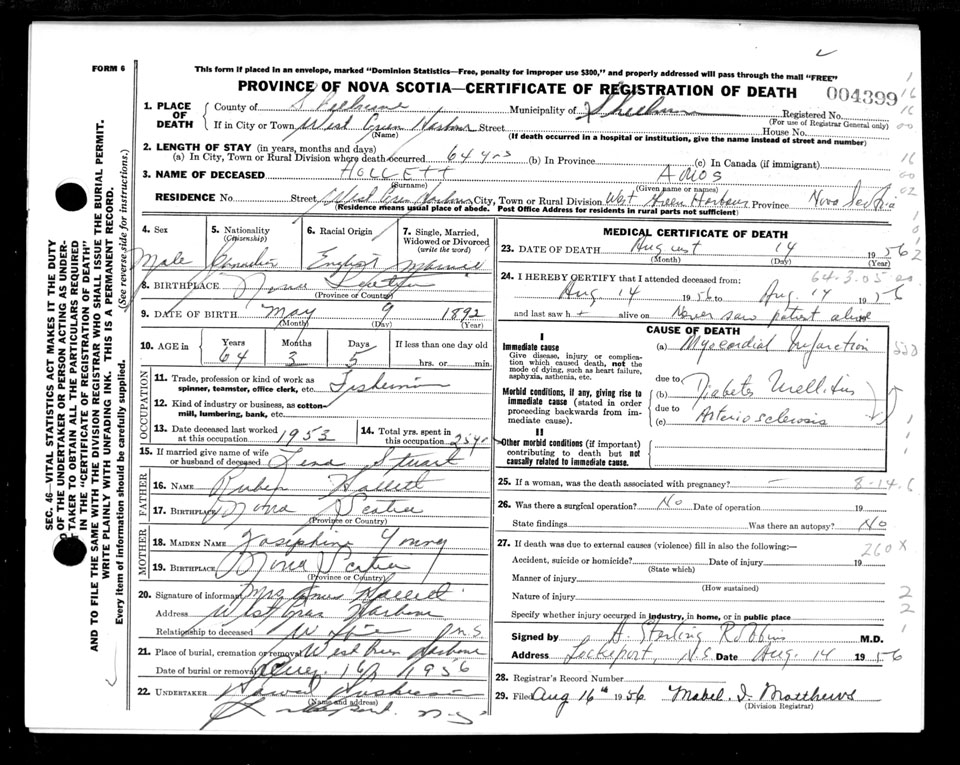 FORM 6
This form if placed in an envelope, marked "Dominion Statistics—Free, penalty for improper use $300," and properly addressed will pass through the mail "FREE"
PROVINCE OF NOVA SCOTIA—CERTIFICATE OF REGISTRATION OF DEATH
004399
1. PLACE OF DEATH
County of Shelburne Municipality of Shelburne Registered No.
(For use of Registrar General only)
If in City or Town West Green Harbour Street House No.
(Name) (If death occurred in a hospital or institution, give the name instead of street and number)
2. LENGTH OF STAY (in years, months and days)
(a) In City, Town or Rural Division where death occurred 64 yrs (b) In Province (c) In Canada (if immigrant)
3. NAME OF DECEASED HOLLETT AMOS
(Surname) (Given name or names)
RESIDENCE No. Street West Green Harbour City, Town or Rural Division West Green Harbour Province Nova Scotia
(Residence means usual place of abode. Post Office Address for residents in rural parts not sufficient)
4. Sex Male
5. Nationality (Citizenship) Canadian
6. Racial Origin English
7. Single, Married, Widowed or Divorced (write the word) Married
8. BIRTHPLACE Nova Scotia
(Province or Country)
9. DATE OF BIRTH May 9 1892
(Month) (Day) (Year)
10. AGE in Years Months Days If less than one day old
64 3 5 hrs. or min.
OCCUPATION
11. Trade, profession or kind of work as spinner, teamster, office clerk, etc. Fisherman
12. Kind of industry or business, as cotton-mill, lumbering, bank, etc.
13. Date deceased last worked at this occupation 1953
14. Total yrs. spent in this occupation 25 yrs
15. If married give name of wife or husband of deceased Lena Stuart
FATHER
16. NAME Ruben Hollett
17. BIRTHPLACE Nova Scotia
(Province or Country)
MOTHER
18. MAIDEN NAME Josephine Young
19. BIRTHPLACE Nova Scotia
(Province or Country)
20. Signature of informant Mrs Amos Hollett
Address West Green Harbour
Relationship to deceased Wife
21. Place of burial, cremation or removal West Green Harbour
Date of burial or removal Aug. 16th 1956
22. UNDERTAKER
(Name and address)
Lockeport. N.S.
MEDICAL CERTIFICATE OF DEATH
23. DATE OF DEATH August 14 1956
(Month) (Day) (Year)
24. I HEREBY CERTIFY that I attended deceased from: 64.3.05
Aug 14 1956 to Aug. 14 1956
and last saw h alive on Never saw patient alive
CAUSE OF DEATH
I
Immediate cause
Give disease, injury or complication which caused death, not the mode of dying, such as heart failure, asphyxia, asthenia, etc.
(a) Myocardial Infarction
due to
Morbid conditions, if any, giving rise to immediate cause (stated in order proceeding backwards from immediate cause).
(b) Diabetes Mellitus
due to
(c) Arteriosclerosis
II
Other morbid conditions (if important) contributing to death but not causally related to immediate cause.
25. If a woman, was the death associated with pregnancy? — 8-14.6
26. Was there a surgical operation? No Date of operation 19
State findings Was there an autopsy? No
27. If death was due to external causes (violence) fill in also the following:— 260 X
Accident, suicide or homicide? Date of injury 19
(State which)
Manner of injury
(How sustained)
Nature of injury
Specify whether injury occurred in industry, in home, or in public place
Signed by H. Sterling Robbins M.D.
Address Lockeport, N.S. Date Aug. 14 1956
28. Registrar's Record Number
29. Filed Aug 16th 1956 Mabel I. Matthews
(Division Registrar)
SEC. 46—VITAL STATISTICS ACT MAKES IT THE DUTY
OF THE UNDERTAKER OR PERSON ACTING AS UNDER-
TAKER TO OBTAIN ALL THE PARTICULARS REQUIRED
IN THE "CERTIFICATE OF REGISTRATION OF DEATH"
AND TO FILE THE SAME WITH THE DIVISION REGISTRAR WHO SHALL ISSUE THE BURIAL PERMIT.
WRITE PLAINLY WITH UNFADING INK. THIS IS A PERMANENT RECORD.
Every item of information should be carefully supplied. (See reverse side for instructions.)